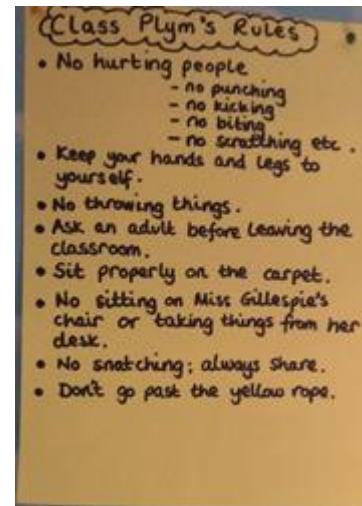 Class Plym's Rules
• No hurting people
- no punching
- no kicking
- no biting
- no scratching etc.
• Keep your hands and legs to
yourself.
• No throwing things.
• Ask an adult before leaving the
classroom.
• Sit properly on the carpet.
• No sitting on Miss Gillespie's
chair or taking things from her
desk.
• No snatching; always share.
• Don't go past the yellow rope.